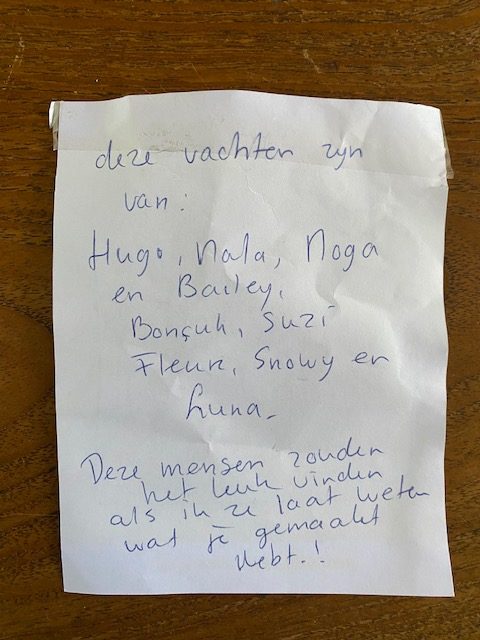 deze vachten zyn
van:
Hugo, Nala, Noga
en Bailey,
Bonçuk, Suzi
Fleur, Snowy en
Luna.
Deze mensen zouden
het leuk vinden
als ik ze laat weten
wat je gemaakt
hebt.!